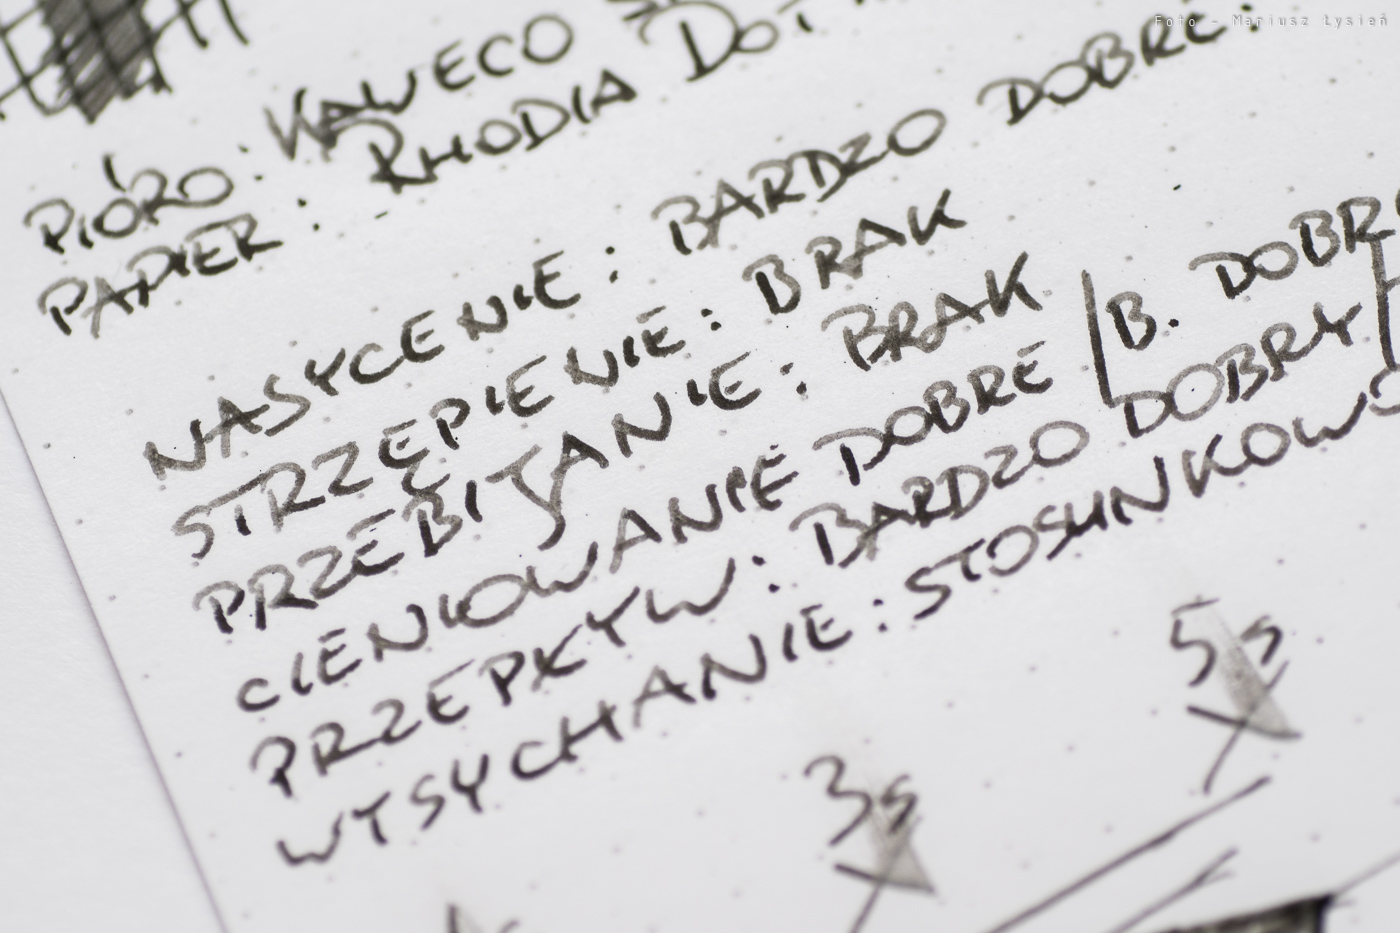 Foto - Mariusz Łysień
PIÓRO: KAWECO
PAPIER: RHODIA DOT
NASYCENIE: BARDZO DOBRE.
STRZĘPIENIE: BRAK
PRZEBIJANIE: BRAK
CIENIOWANIE DOBRE / B. DOBR
PRZEPŁYW: BARDZO DOBRY
WYSYCHANIE: STOSUNKOWO
5s
3s